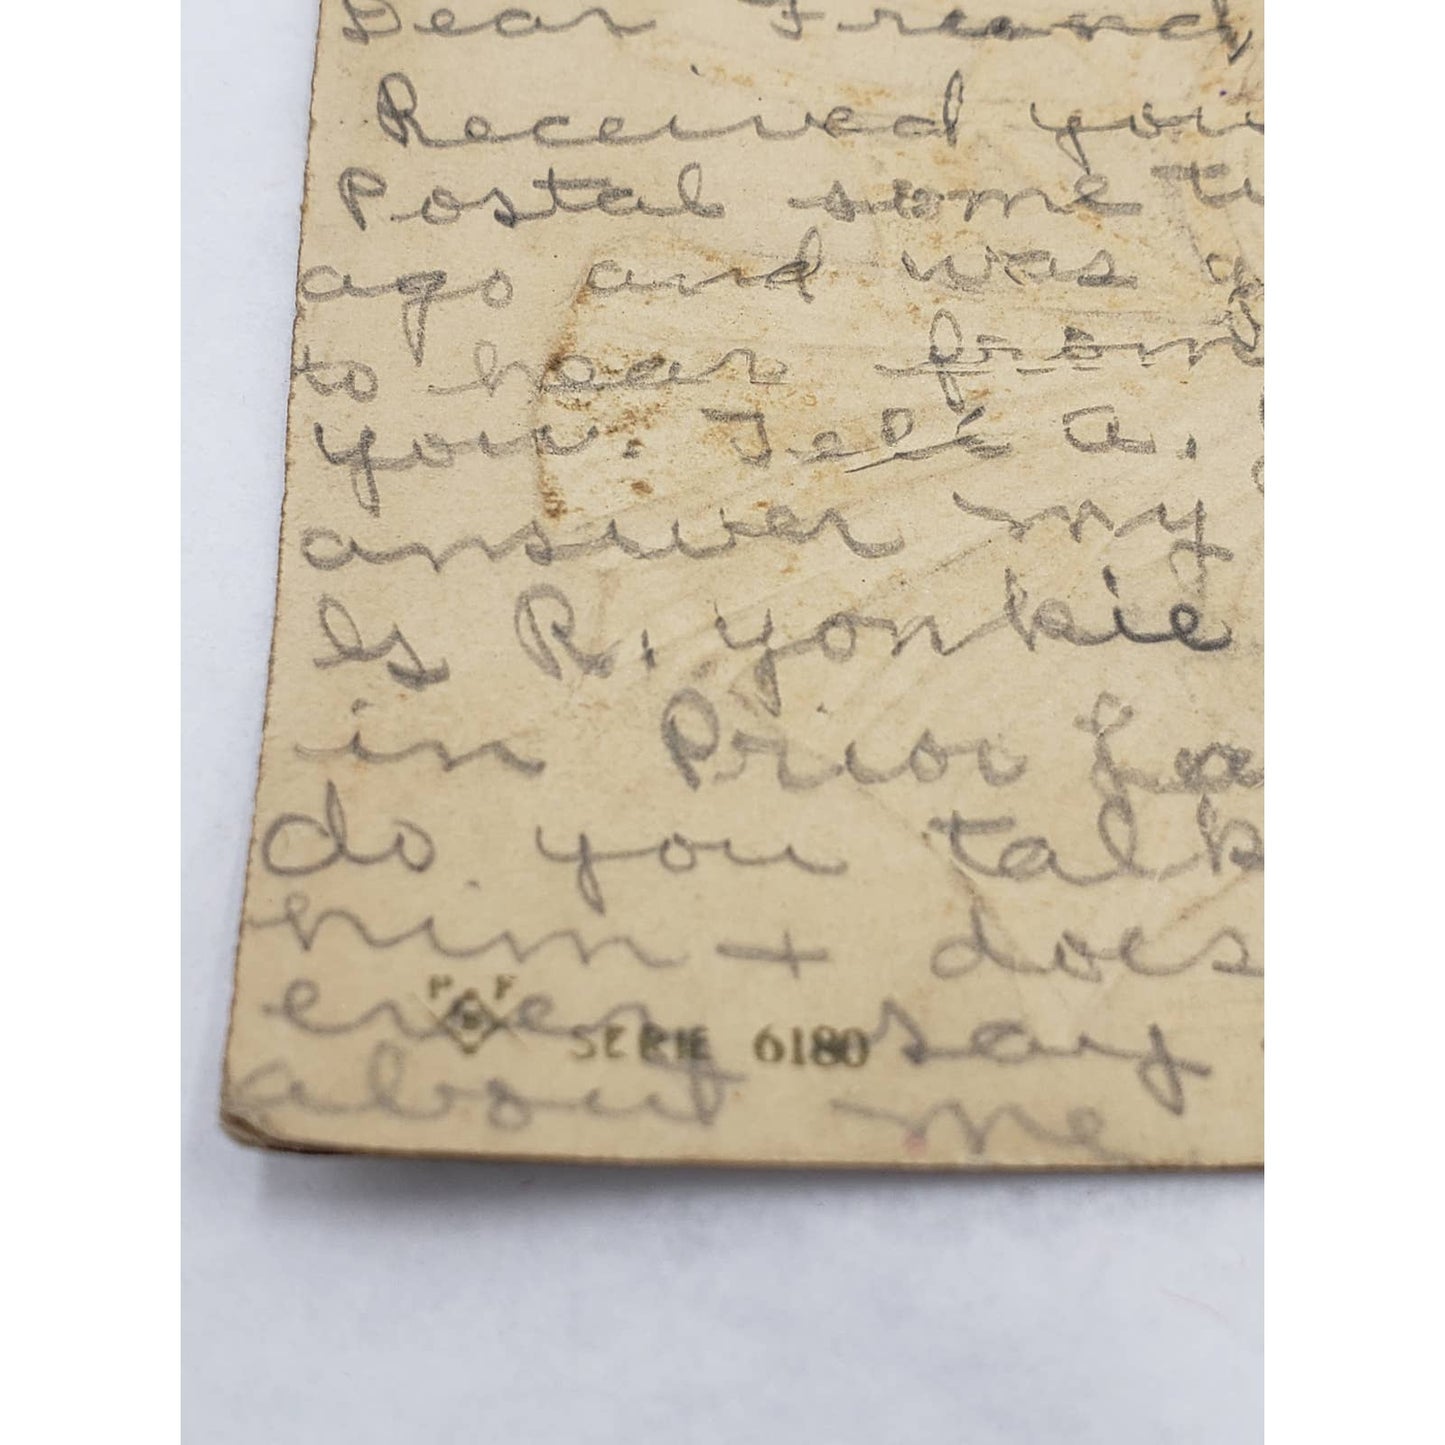 Dear Friend,
Received you
Postal some ti
ago and was g
to hear from
you. Tell a.
answer my
Is R. yonkie
in Prior La
do you talk
him + does
ever say
P F
SERIE 6180
about me